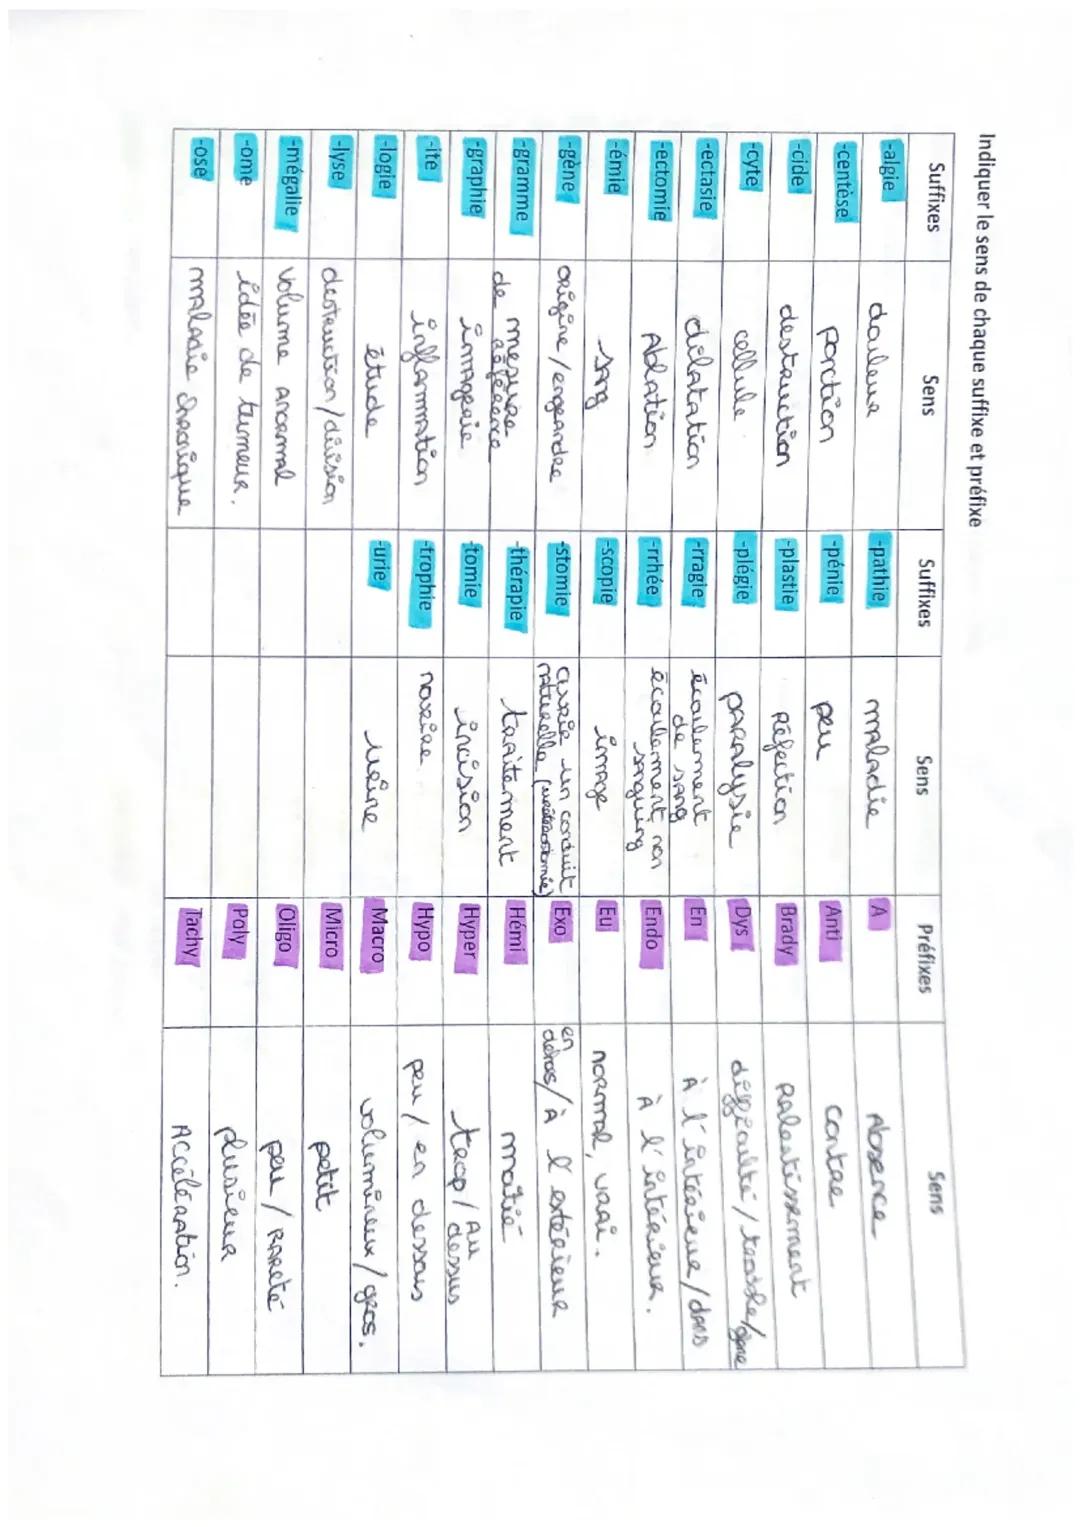 Indiquer le sens de chaque suffixe et préfixe
Suffixes Sens Suffixes Sens Préfixes Sens
-algie douleur -pathie maladie A Absence
-centèse ponction -pénie peu Anti contre
-cide destruction -plastie Réfection Brady Ralentissement
-cyte cellule -plégie paralysie Dys difficulté / trouble / gêne
-ectasie dilatation -rragie écoulement de sang En A l'intérieur / dans
-ectomie Ablation -rrhée écoulement non sanguins Endo A l'intérieur.
-émie sang -scopie image Eu normal, vrai.
-gène origine / engendre -stomie ouvrir un conduit naturelle (urétérostomie) Exo en dehors / À l'extérieur
-gramme mesure de référence -thérapie traitement Hémi moitié
-graphie imagerie -tomie incision Hyper trop / Au dessus
-ite inflammation -trophie nourire Hypo peu / en dessous
-logie étude -urie urine Macro volumineux / gros.
-lyse destruction / division Micro petit
-mégalie volume anormal Oligo peu / Rareté
-ome idée de tumeur. Poly plusieur
-ose maladie chronique Tachy Accélération.